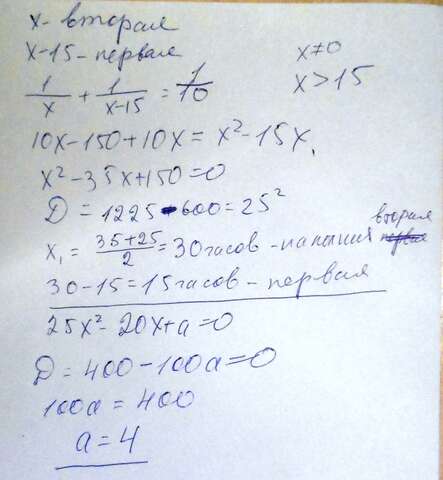 x - вторая
x-15 - первая
x≠0
x>15
1/x + 1/(x-15) = 1/10
10x-150+10x = x²-15x,
x²-35x+150=0
D = 1225-600=25²
x₁ = (35+25)/2 = 30 часов - вторая
30-15=15 часов - первая
25x²-20x+a=0
D = 400-100a=0
100a = 400
a = 4